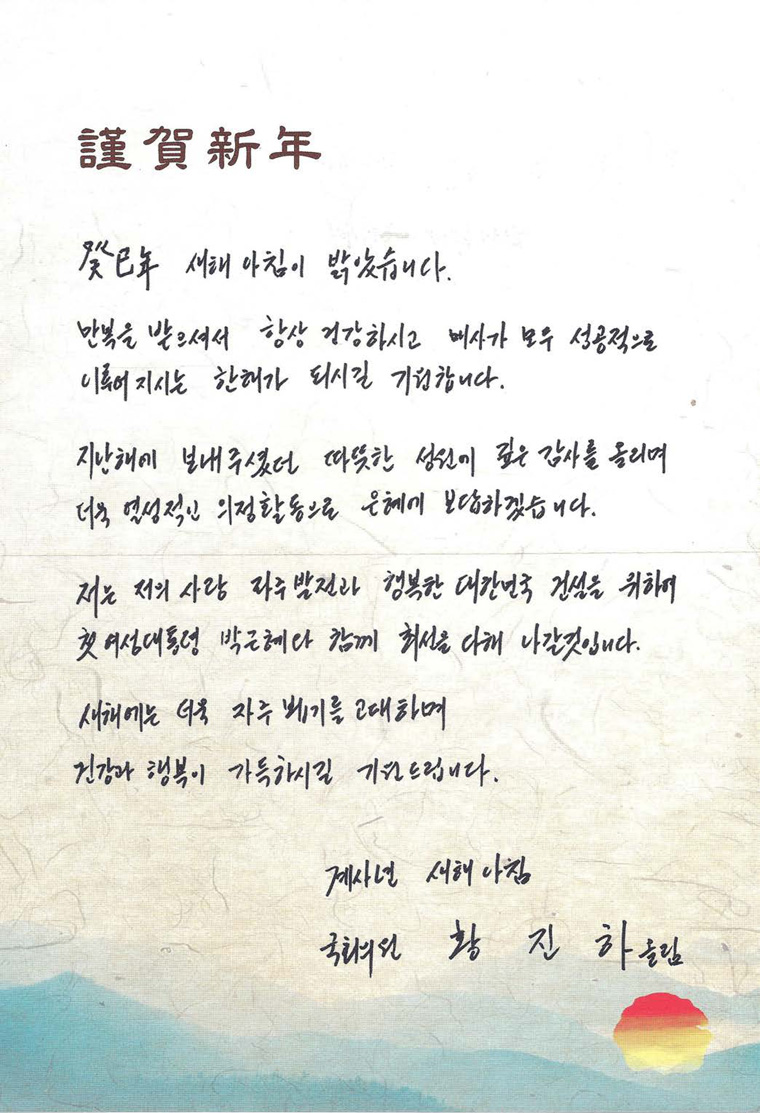 謹賀新年
癸巳年 새해 아침이 밝았습니다.
만복을 받으셔서 항상 건강하시고 매사가 모두 성공적으로
이루어 지시는 한해가 되시길 기원합니다.
지난해에 보내주셨던 따뜻한 성원에 깊은 감사를 올리며
더욱 열성적인 의정활동으로 은혜에 보답하겠습니다.
저는 저의 사랑 파주발전과 행복한 대한민국 건설을 위하여
첫 여성대통령 박근혜와 함께 최선을 다해 나갈것입니다.
새해에는 더욱 자주 뵙기를 고대하며
건강과 행복이 가득하시길 기원드립니다.
계사년 새해 아침
국회의원 황 진 하 올림